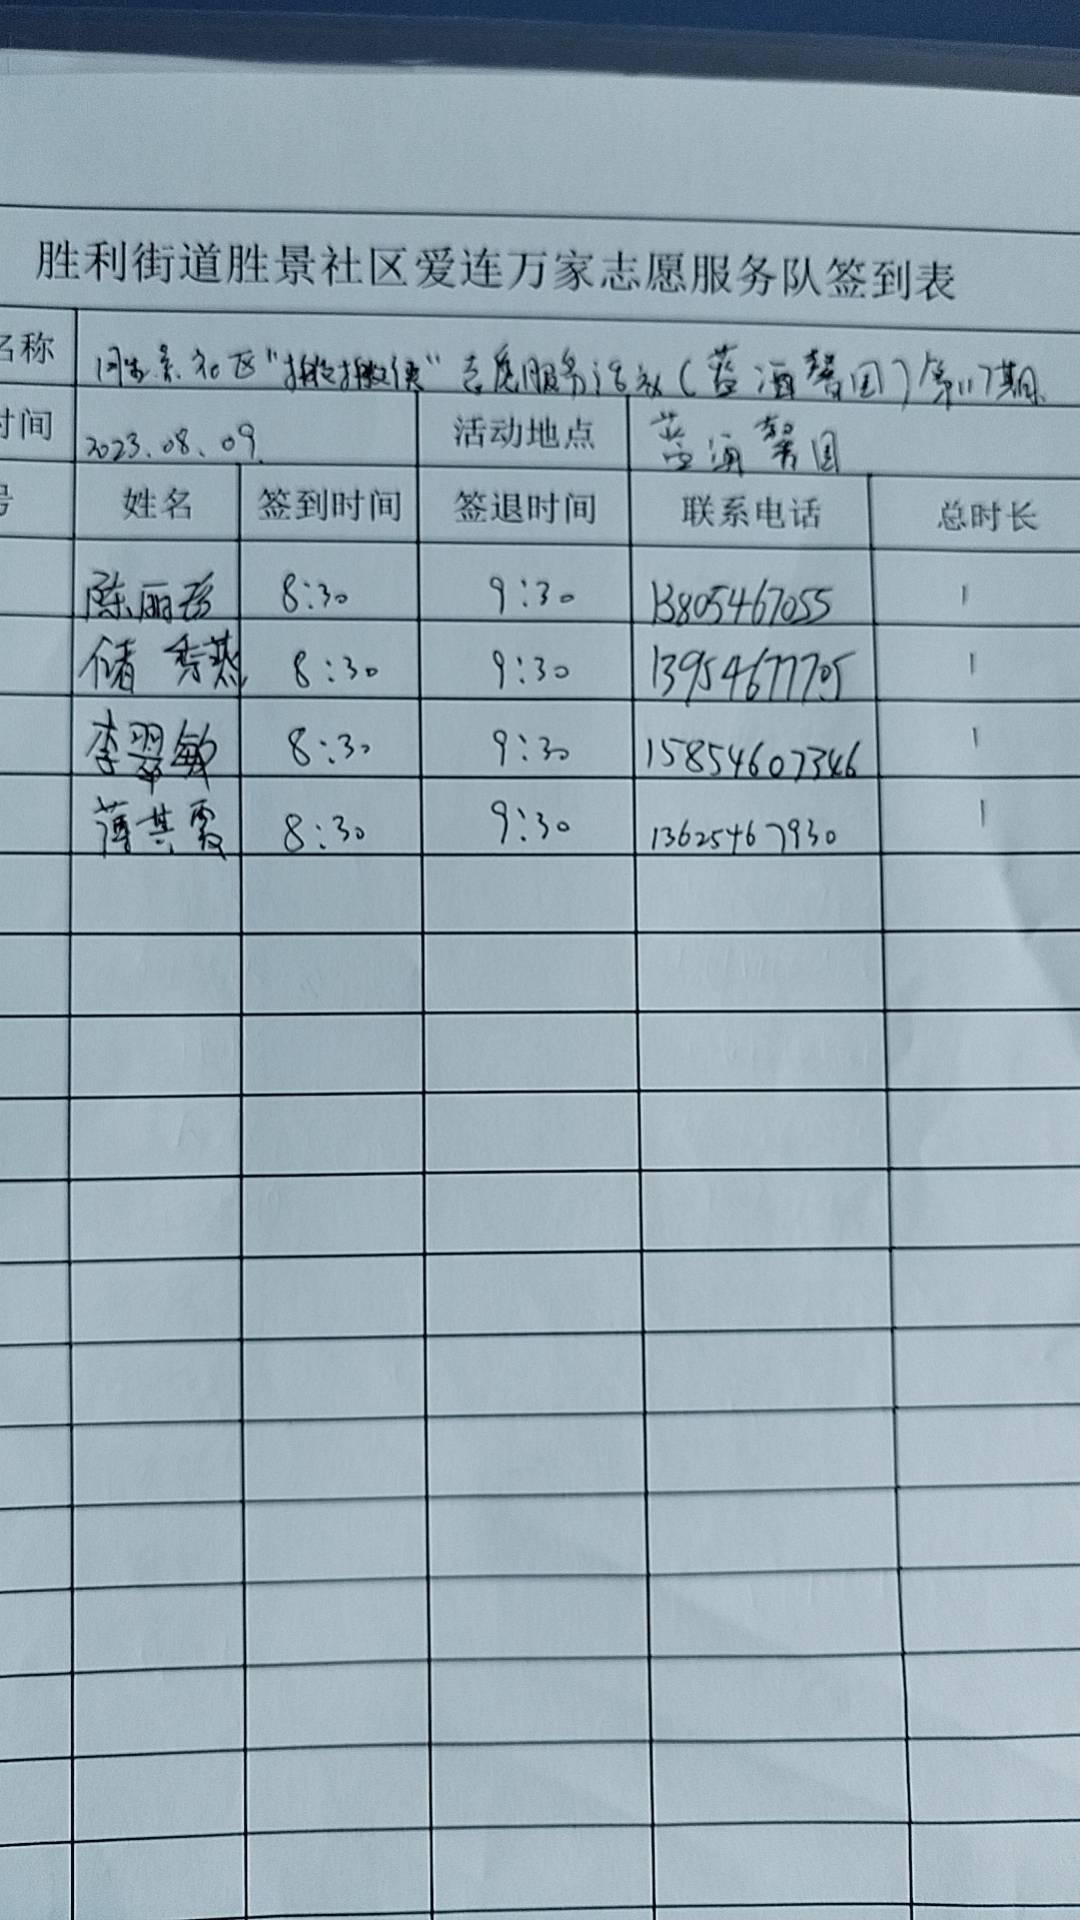 胜利街道胜景社区爱连万家志愿服务队签到表
名称 胜景社区"捡捡侠"志愿服务活动(蓝海馨园)第117期
时间 2023.08.09. 活动地点 蓝海馨园
号 姓名 签到时间 签退时间 联系电话 总时长
陈丽芬 8:30 9:30 13805467055 1
储秀燕 8:30 9:30 13954677705 1
李翠敏 8:30 9:30 15854607346 1
薄其霞 8:30 9:30 13625467930 1